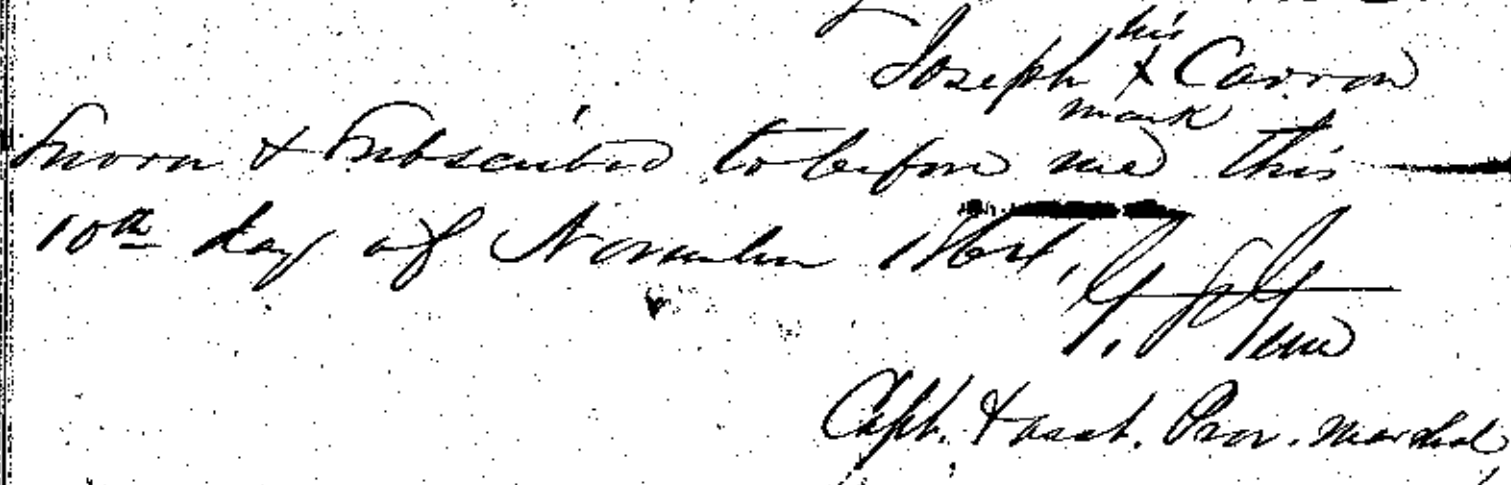 his
Joseph X Carron
mark
Sworn & Subscribed to before me this
10th day of November 1864,
Capt. & asst. Prov. Marshal